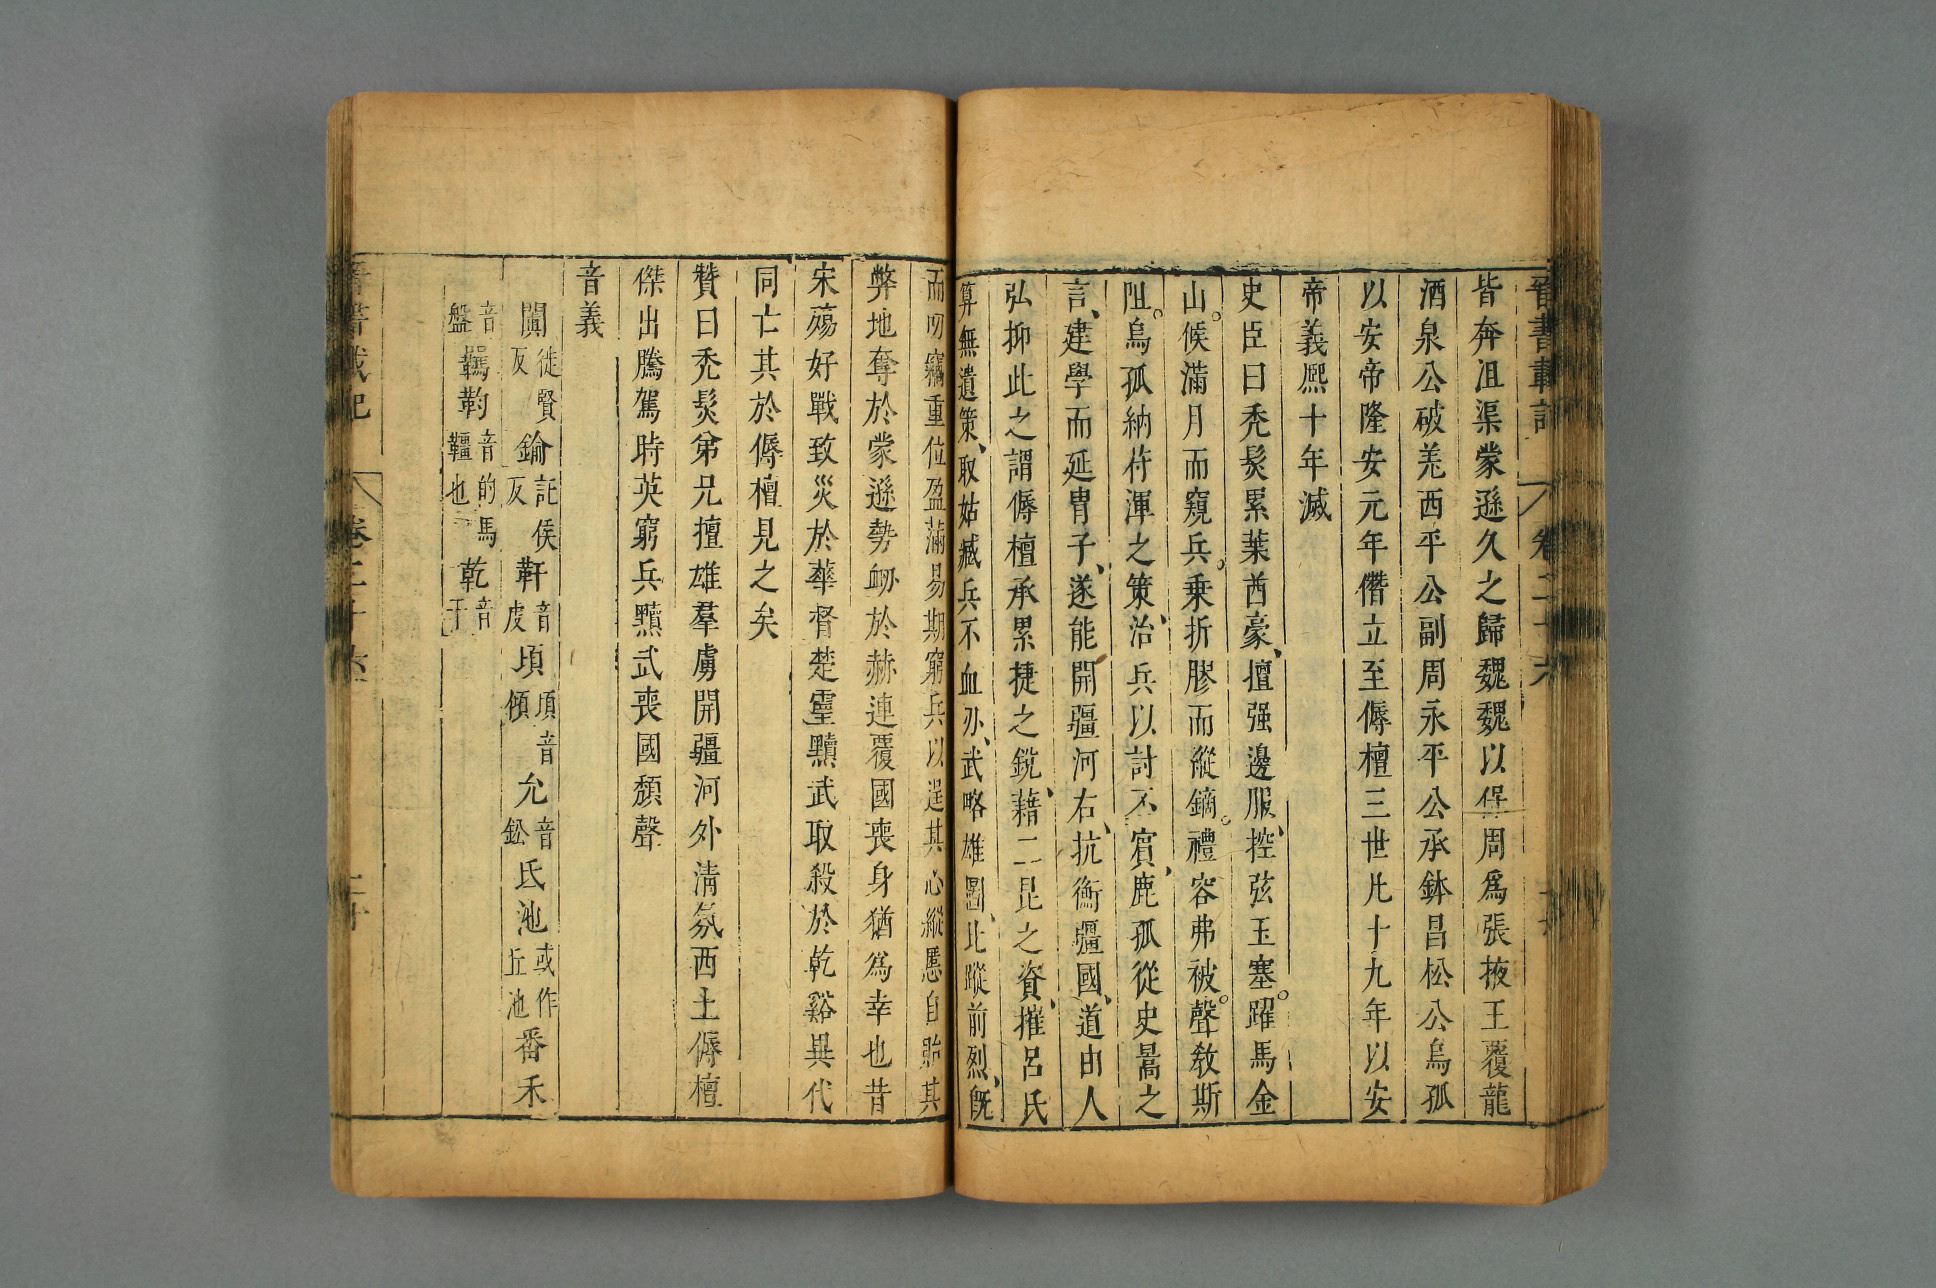 晉書載記 卷二十六
皆奔沮渠蒙遜久之歸魏魏以保周爲張掖王覆龍
酒泉公破羌西平公副周永平公承鉢昌松公烏孤
以安帝隆安元年僭立至傉檀三世凡十九年以安
帝義熙十年滅
史臣曰禿髮累葉酋豪擅强邊服控弦玉塞躍馬金
山候滿月而窺兵乗折膠而縱鏑禮容弗被聲敎斯
阻烏孤納苻渾之策治兵以討不賓鹿孤從史暠之
言建學而延胄子遂能開疆河右抗衡疆國道由人
弘抑此之謂傉檀承累捷之銳藉二昆之資摧呂氏
算無遺策取姑臧兵不血刃武略雄圖比蹤前烈旣
而叨竊重位盈滿易期窮兵以逞其心縱慝自貽其
弊地奪於蒙遜勢衂於赫連覆國喪身猶爲幸也昔
宋殤好戰致災於華督楚靈黷武取殺於乾谿異代
同亡其於傉檀見之矣
贊曰禿髮弟兄擅雄羣虜開疆河外清氛西土傉檀
傑出騰駕時英窮兵黷武喪國頹聲
音義
闐徒賢反 鍮託侯反 䖍音虔 頃項音傾 允音鈆 氏池或作丘池 番禾
音盤 羈靮音的馬韁也 乾音干
晉書載記 卷二十六 二十